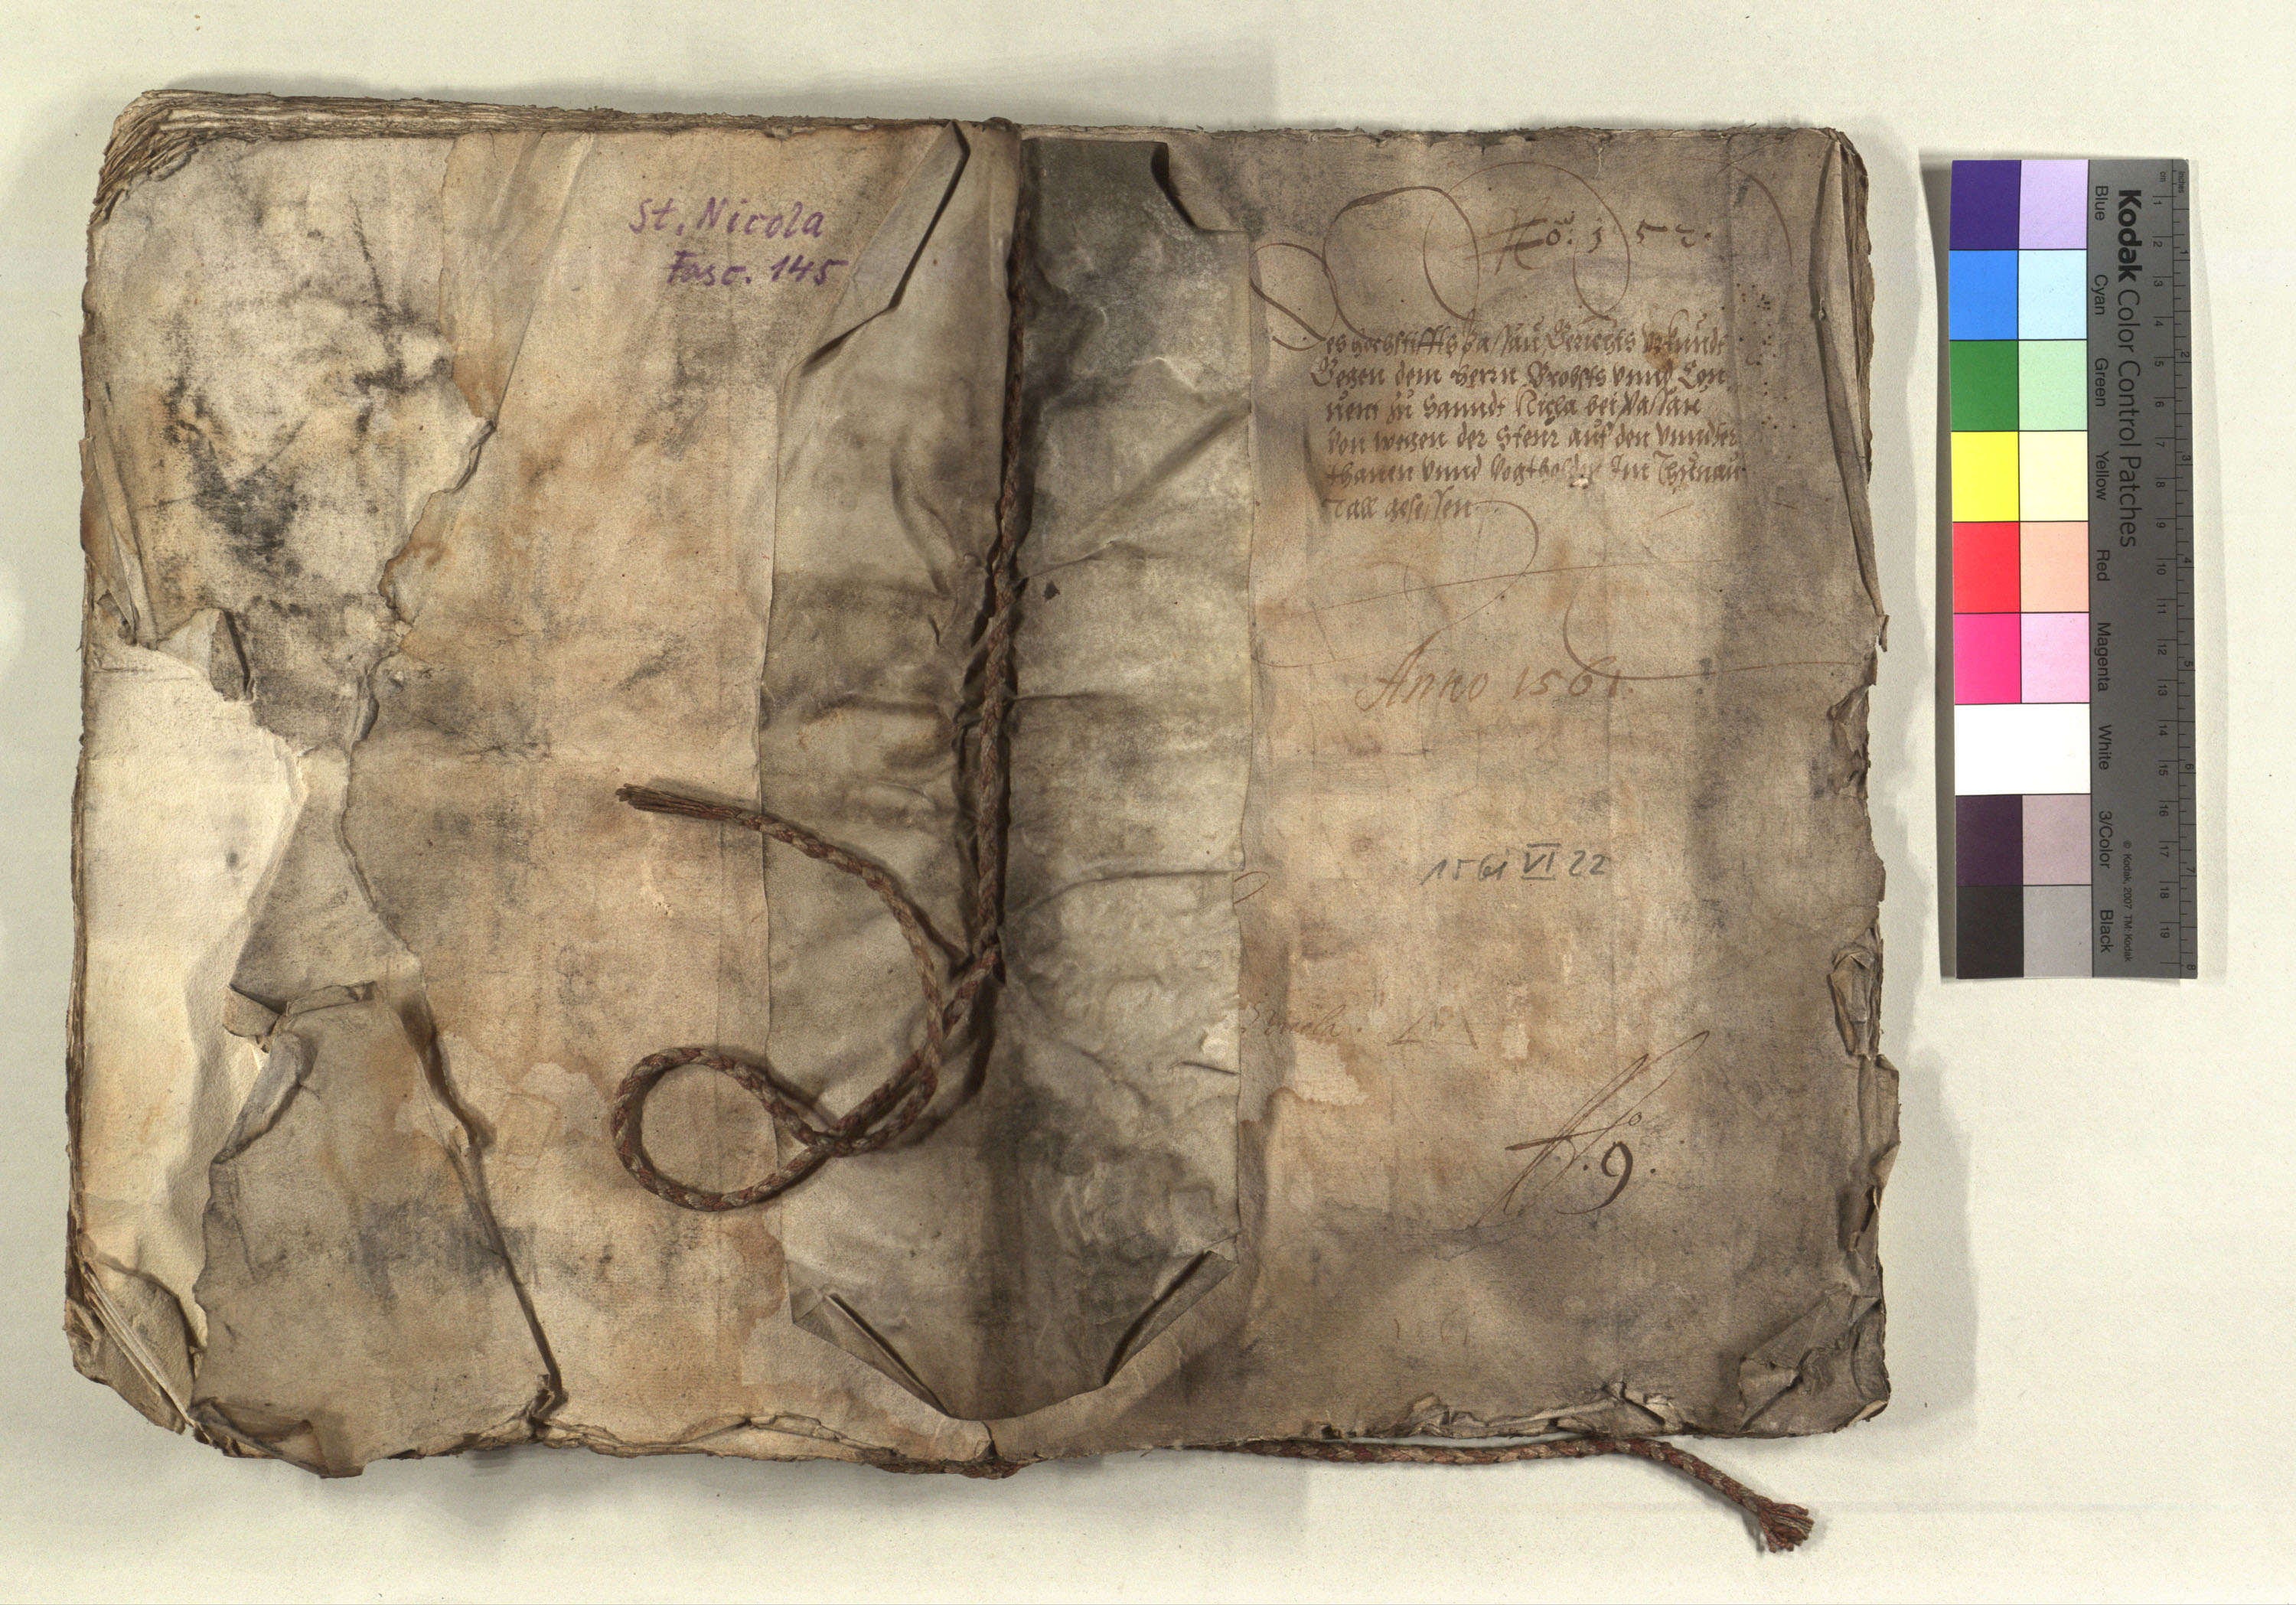 St. Nicola
Fasc. 145
No: 152.
Des Hochstiffts Passau Gerichts Urkundt
Gegen dem Herrn Brobsts vnnd Con
uent zu Sanndt Nicla bei Passau
von wegen der Steur auf den vnnder
thanen vnnd Vogtholden Im Thurnau
Tall gesessen
Anno 1561.
1561 VI 22
S Nicola.
No. 9.
1561
Kodak Color Control Patches
Blue
Cyan
Green
Yellow
Red
Magenta
White
3/Color
Black
© Kodak, 2007 TM: Kodak
cm 1 2 3 4 5 6 7 8 9 10 11 12 13 14 15 16 17 18 19
inches 1 2 3 4 5 6 7 8